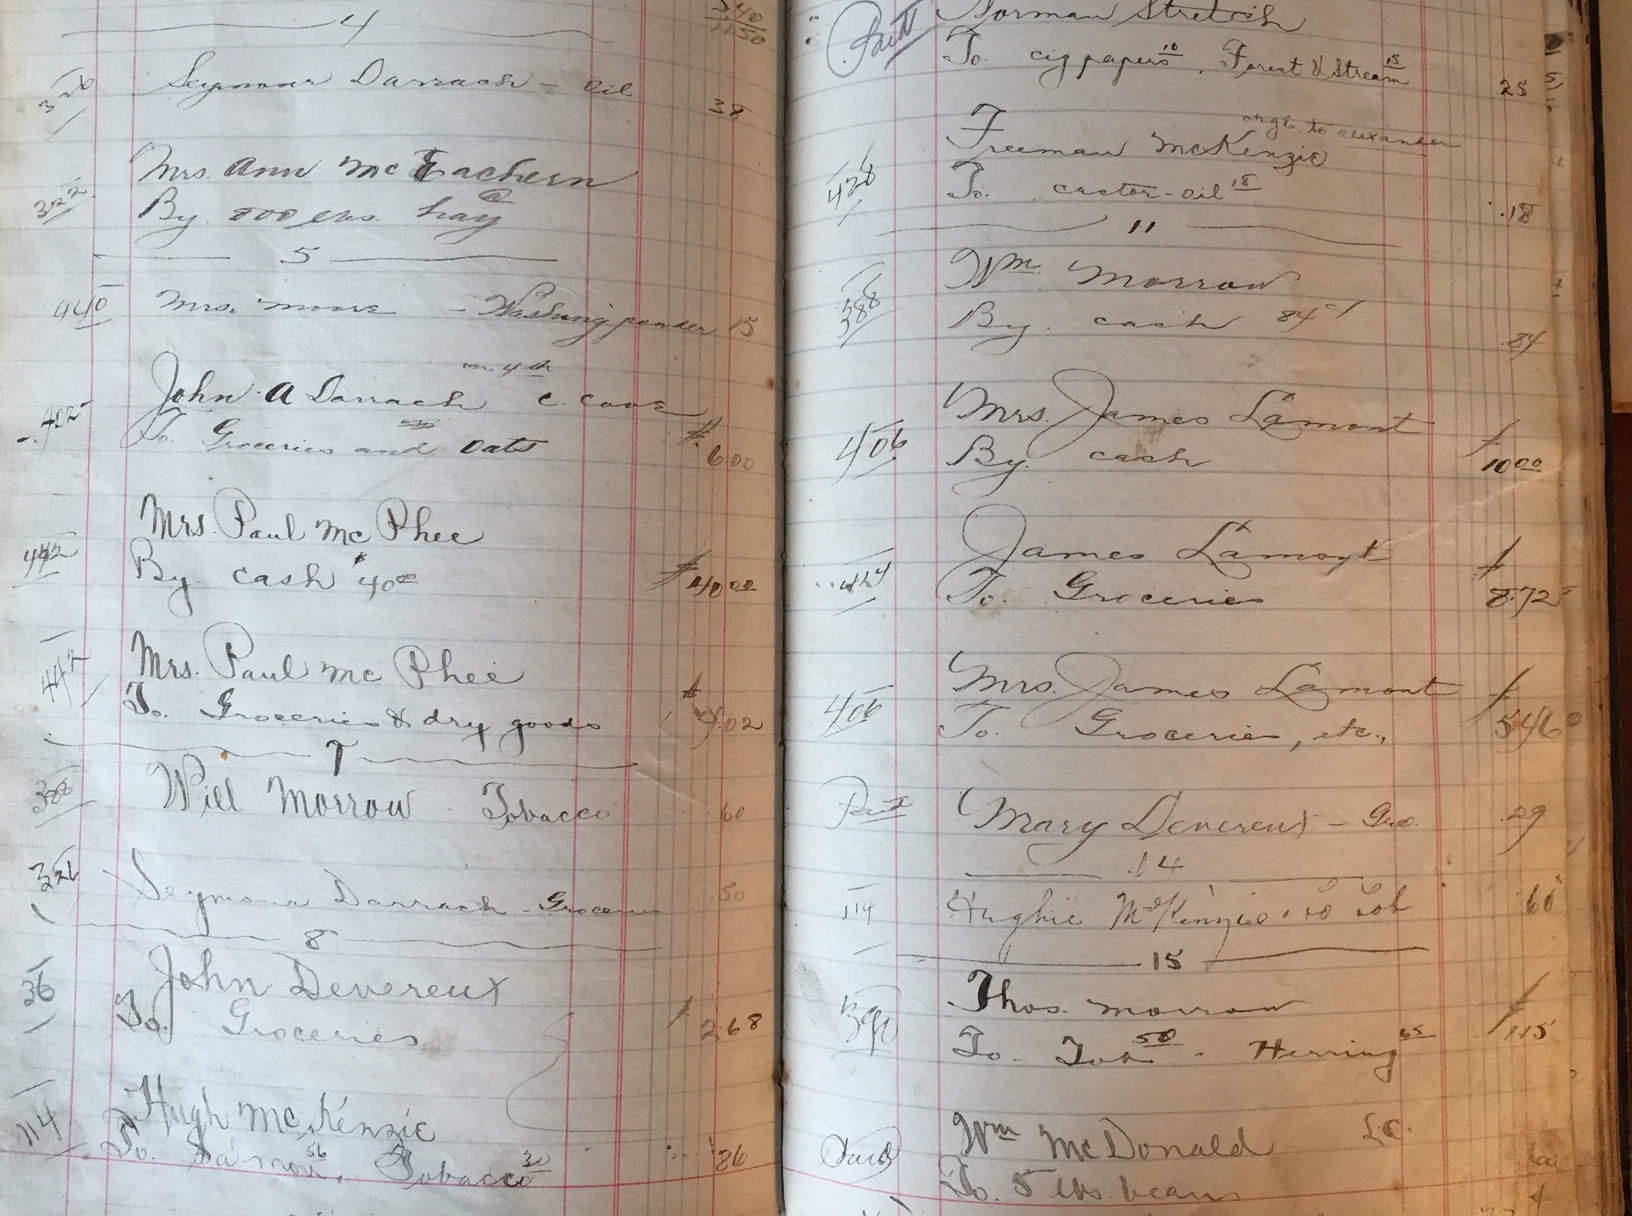 4
Seymour Darrach - Oil 38
Mrs. Ann McEachern
322 By 800 lbs. hay @
5
440 Mrs. Moore - Washing powder 15
on 4th
John A Darrach c. cove
402 To Groceries and Oats $ 6 00
Mrs Paul McPhee
442 By cash $40 00 $ 40 00
Mrs. Paul McPhee
442 To. Groceries & dry goods $ 02
7
388 Will Morrow - Tobacco 60
Seymour Darrach - Groceries 50
8
36 John Devereux
To. Groceries $ 2 68
Hugh McKenzie
114 To. Salmon 56, Tobacco 30 86
Paid Norman Stretch
To. cig papers 10, Forest & Stream 15 25
chgd. to alexander
Freeman McKenzie
428 To. castor-oil 18 .18
11
Wm Morrow
388 By. cash 84 .84
Mrs. James Lamont
406 By. cash $ 10 00
James Lamont
To. Groceries $ 8.72
Mrs. James Lamont
406 To. Groceries, etc., $ 5.46
Paid Mary Devereux - Gro. .29
14
114 Hughie McKenzie. to Tob 60
15
Thos. Morrow
390 To. Tob 50 - Herring 65 $ 1.15
Wm McDonald L.C.
Paid To. 5 lbs. beans